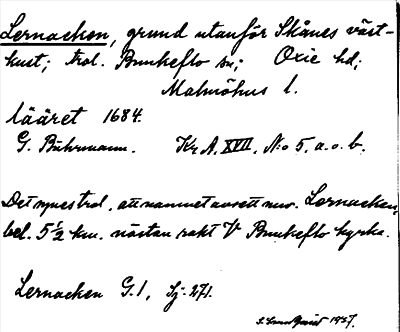 Lernacken, grund utanför Skånes väst-
kust; trol. Bunkeflo sn; Oxie hd;
Malmöhus l.
lääret 1684.
G. Buhrmann. Kr. A. XVII. No 5, a.o.b.
Det synes trol. att namnet avsett nuv. Lernacken,
bel. 5 1/2 km. nästan rakt V Bunkeflo kyrka.
Lernacken G.1, Sj. 271.
1927.